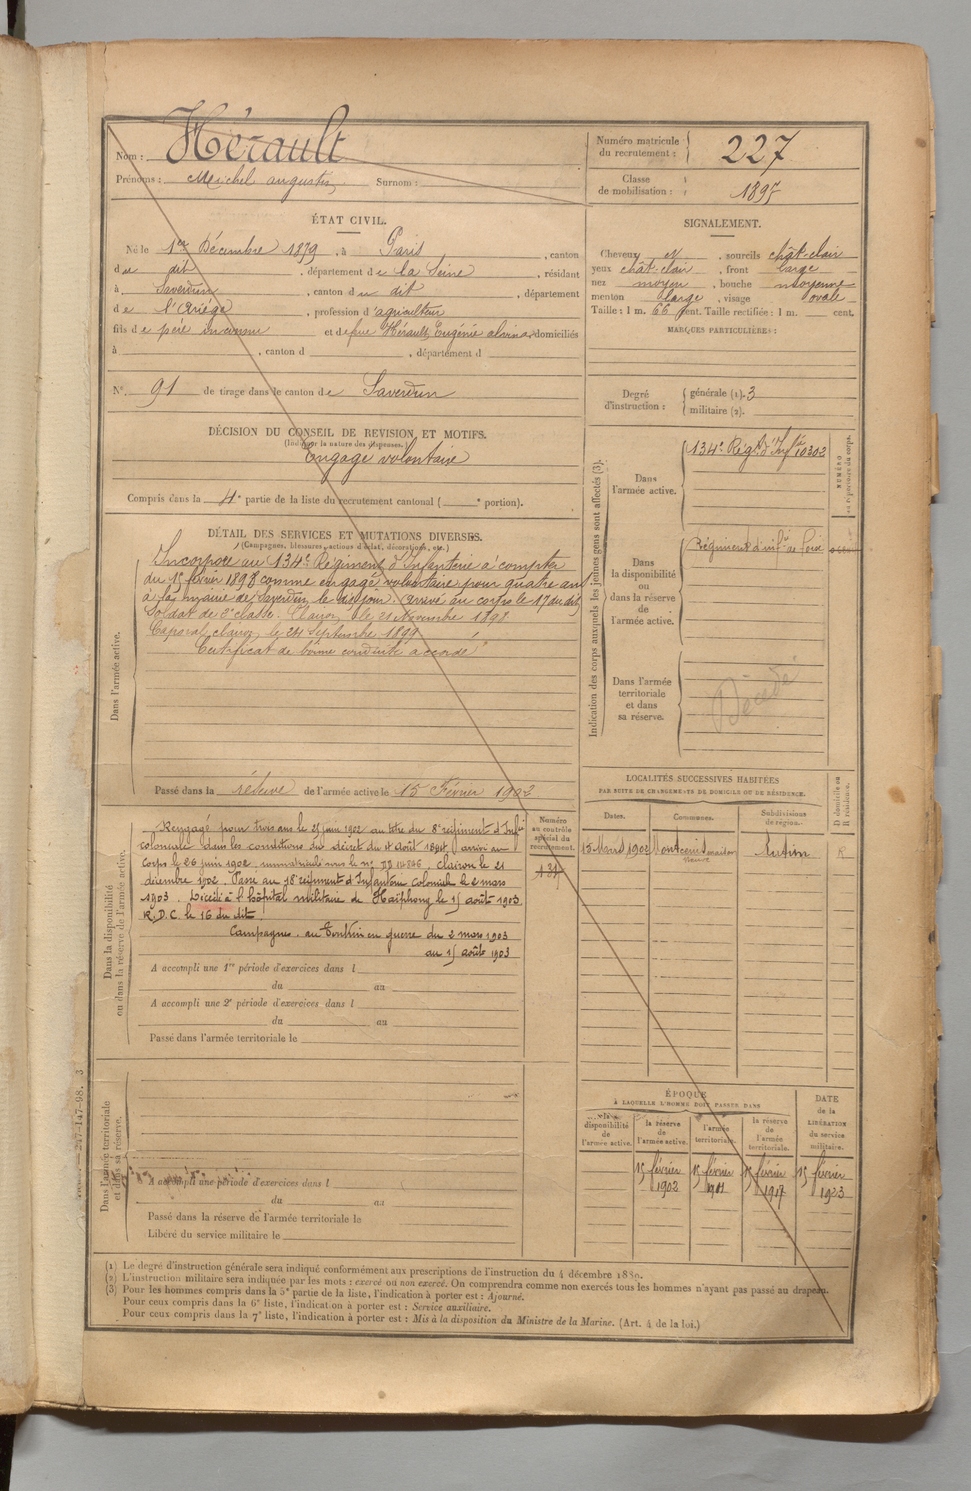 Nom : Hérault
Prénoms : Michel Auguste Surnom :
Numéro matricule du recrutement : 227
Classe de mobilisation : 1897
ÉTAT CIVIL.
Né le 1er Décembre 1879, à Paris, canton
du dit, département de la Seine, résidant
à Saverdun, canton du dit, département
de l'Ariège, profession d'agriculteur
fils de père inconnu et de feue Hérault, Eugénie domiciliés
à , canton d , département d
N° 91 de tirage dans le canton de Saverdun
SIGNALEMENT.
Cheveux et , sourcils chât-clair
yeux chât-clair , front large
nez moyen , bouche moyenne
menton large , visage ovale
Taille : 1 m. 66 cent. Taille rectifiée : 1 m. cent.
MARQUES PARTICULIÈRES :
Degré d'instruction : générale (1). 3
militaire (2).
DÉCISION DU CONSEIL DE REVISION ET MOTIFS.
(Indiquer la nature des dispenses.)
Engagé volontaire
Compris dans la 4e partie de la liste du recrutement cantonal ( e portion).
DÉTAIL DES SERVICES ET MUTATIONS DIVERSES.
(Campagnes, blessures, actions d'éclat, décorations, etc.)
Dans l'armée active.
Incorporé au 134e Régiment d'Infanterie à compter
du 15 février 1898 comme engagé volontaire pour quatre ans
à la mairie de Saverdun, le dit jour. Arrivé au corps le 17 du dit,
Soldat de 2e classe. Clairon, le 21 Novembre 1898.
Caporal clairon, le 24 Septembre 1899
Certificat de bonne conduite accordé
Passé dans la réserve de l'armée active le 15 Février 1902
Indication des corps auxquels les jeunes gens sont affectés (3).
NUMÉRO au répertoire du corps.
Dans l'armée active.
134e Régt d'Infie 10302
Dans la disponibilité ou dans la réserve de l'armée active.
Régiment d'infie de
Dans l'armée territoriale et dans sa réserve.
Décédé
LOCALITÉS SUCCESSIVES HABITÉES
PAR SUITE DE CHANGEMENTS DE DOMICILE OU DE RÉSIDENCE.
Dates. Communes. Subdivisions de région. D domicile ou R résidence.
15 Mars 1902 Montcenis Autun R
Numéro au contrôle spécial du recrutement.
Dans la disponibilité ou dans la réserve de l'armée active.
Rengagé pour trois ans le 25 juin 1902 au titre du 8e régiment d'Infie
coloniale dans les conditions du décret du 4 août 1894, arrivé au
corps le 26 juin 1902, immatriculé sous le no , clairon le 21
décembre 1902. Passé au 18e régiment d'Infanterie Coloniale le 2 mars
1903. Décédé à l'hôpital militaire de Haïphong le 15 août 1903
R.D.C. le 16 du dit
Campagnes. au Tonkin en guerre du 2 mars 1903
au 15 août 1903
A accompli une 1re période d'exercices dans l
du au
A accompli une 2e période d'exercices dans l
du au
Passé dans l'armée territoriale le
Dans l'armée territoriale et dans sa réserve.
A accompli une période d'exercices dans l
du au
Passé dans la réserve de l'armée territoriale le
Libéré du service militaire le
ÉPOQUE
À LAQUELLE L'HOMME DOIT PASSER DANS
la disponibilité de l'armée active.
la réserve de l'armée active.
l'armée territoriale.
la réserve de l'armée territoriale.
DATE de la LIBÉRATION du service militaire.
15 février 1902
15 février
15 février 1917
15 février 1923
247-147-98. 3
(1) Le degré d'instruction générale sera indiqué conformément aux prescriptions de l'instruction du 4 décembre 1889.
(2) L'instruction militaire sera indiquée par les mots : exercé ou non exercé. On comprendra comme non exercés tous les hommes n'ayant pas passé au drapeau.
(3) Pour les hommes compris dans la 5e partie de la liste, l'indication à porter est : Ajourné.
Pour ceux compris dans la 6e liste, l'indication à porter est : Service auxiliaire.
Pour ceux compris dans la 7e liste, l'indication à porter est : Mis à la disposition du Ministre de la Marine. (Art. 4 de la loi.)